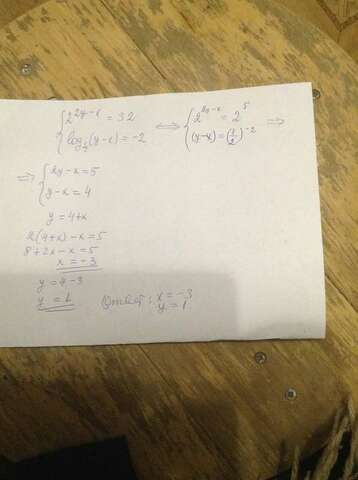 { 2^{2y-x} = 32 ⟺ { 2^{2y-x} = 2^5 ⟹
{ log_{1/2}(y-x) = -2 { (y-x) = (1/2)^{-2}
⟹ { 2y-x = 5
{ y-x = 4
y = 4+x
2(4+x)-x = 5
8+2x-x = 5
x = -3
y = 4-3
y = 1
Ответ: x = -3
y = 1